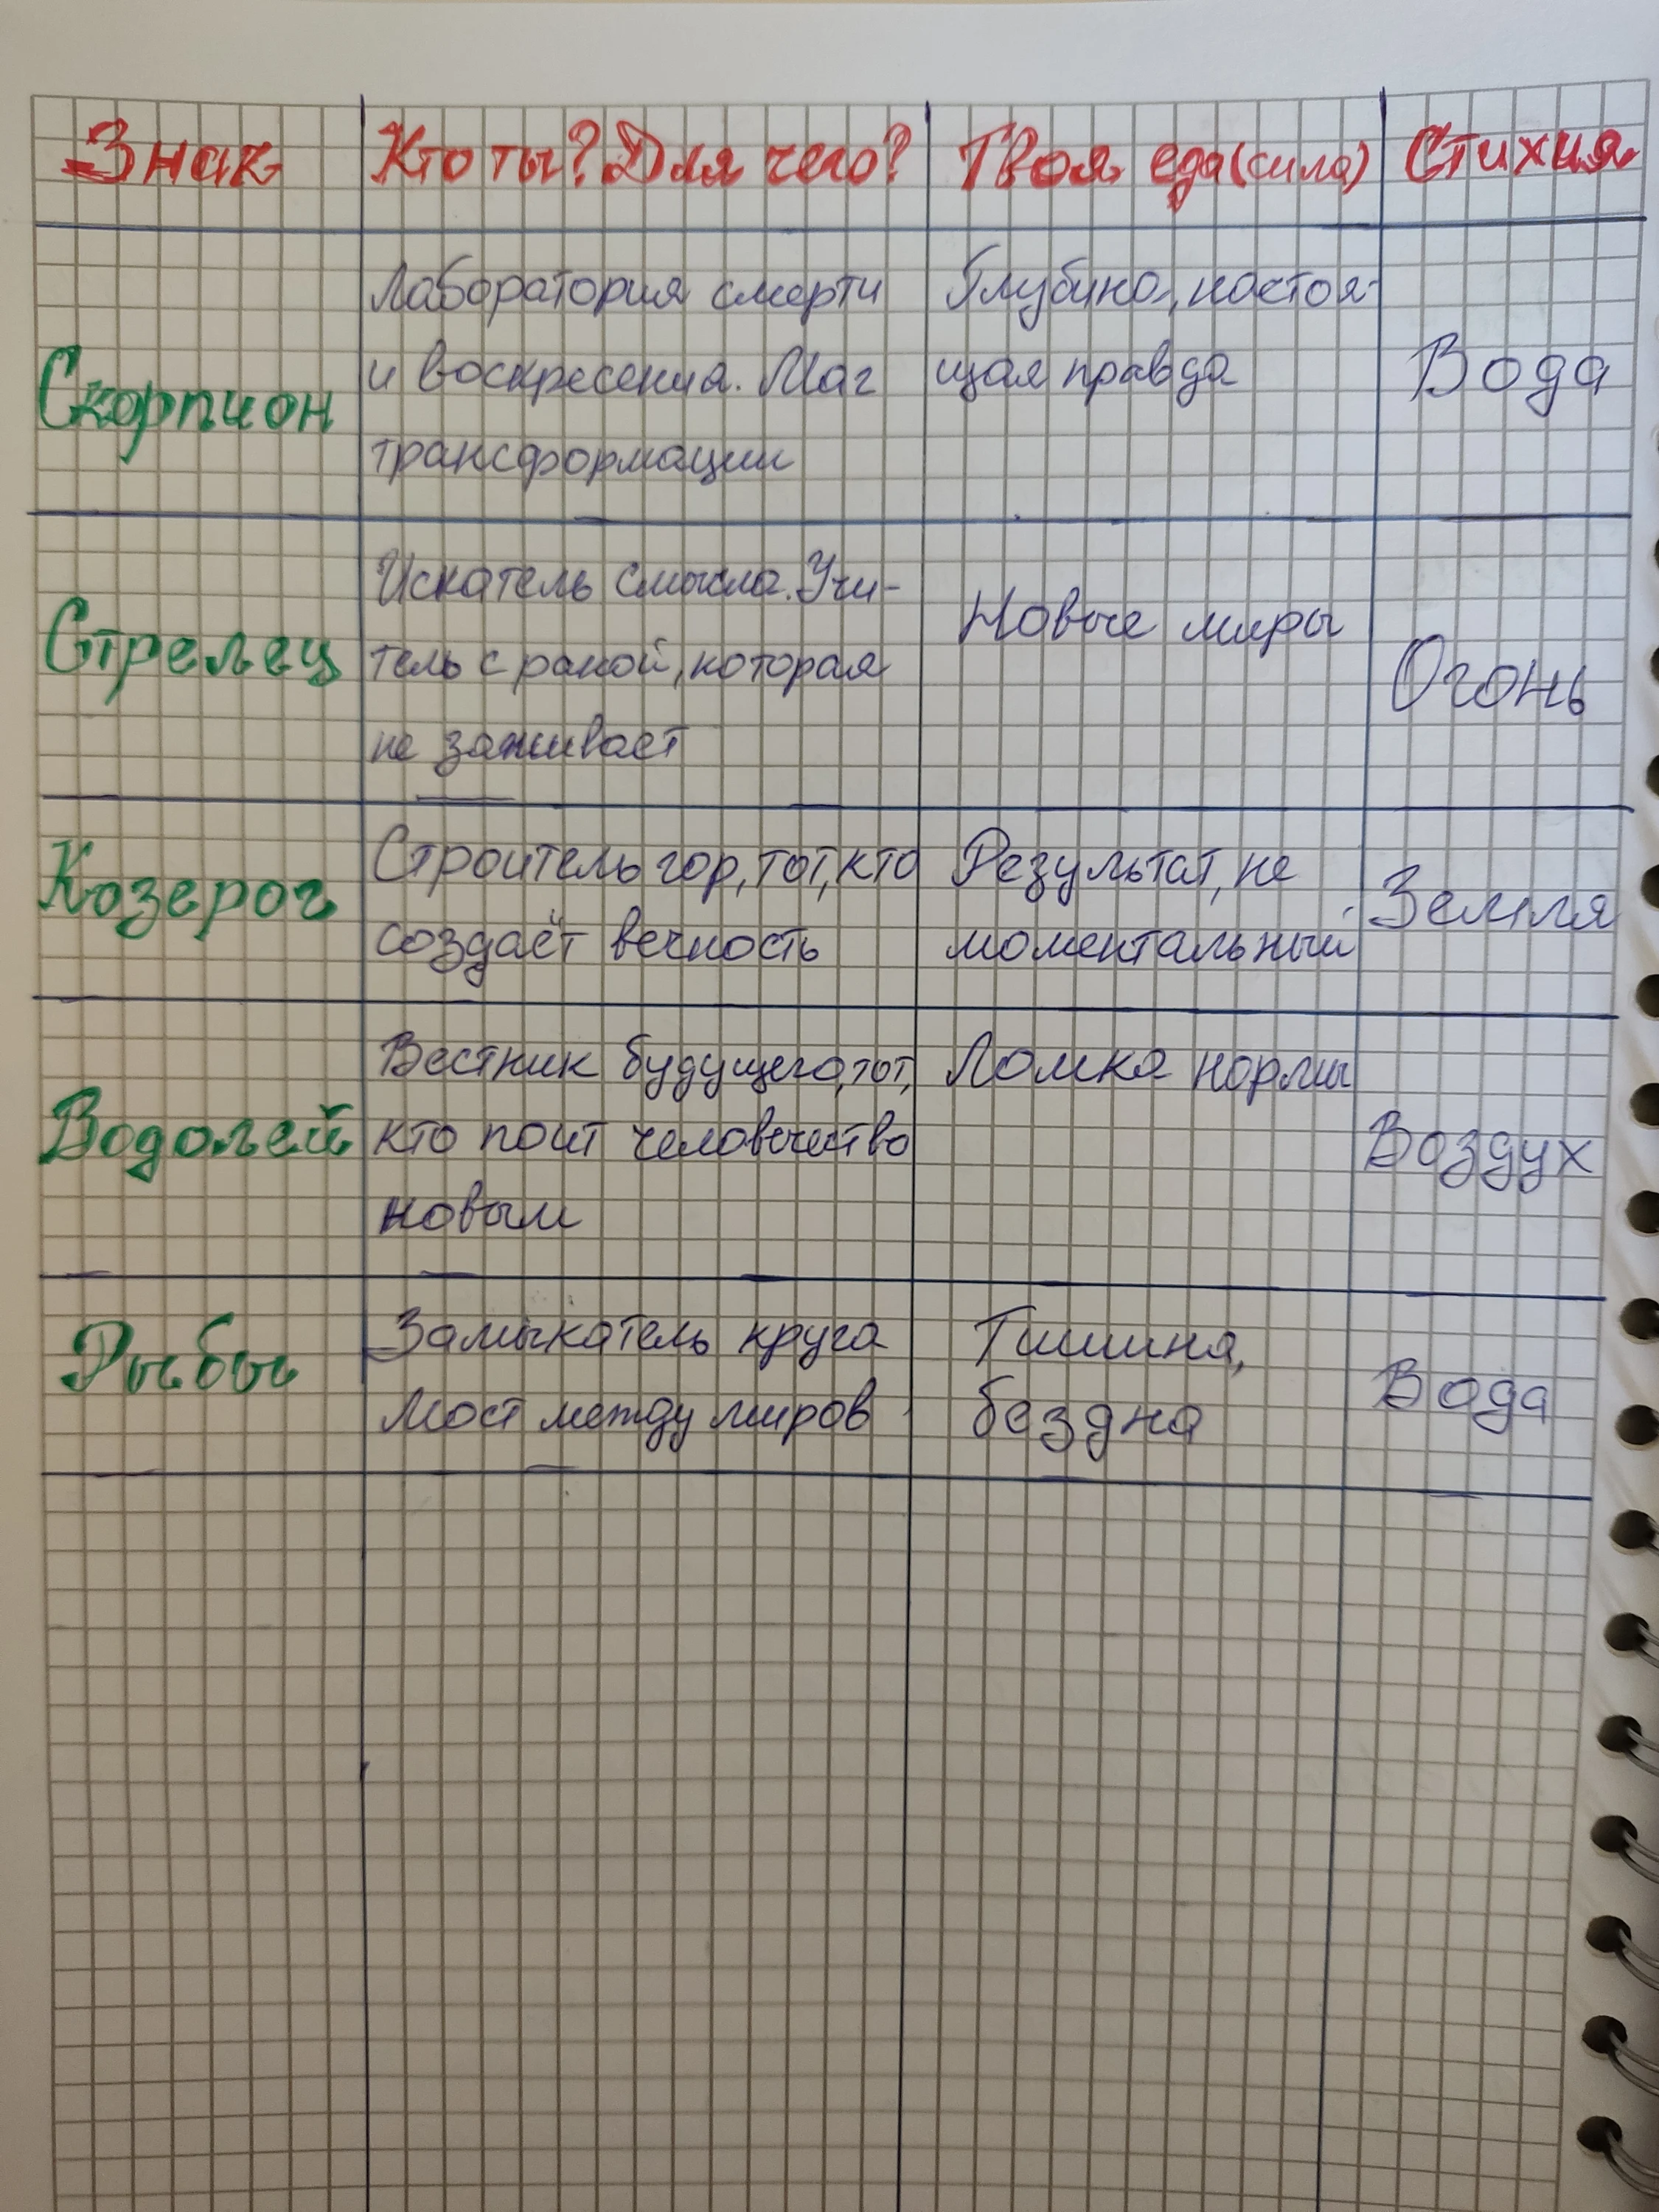 Знак Кто ты? Для чего? Твоя еда (сила) Стихия
Скорпион
Лаборатория смерти
и воскресения. Маг
трансформации
Глубина, настоя-
щая правда
Вода
Стрелец
Искатель смысла. Учи-
тель с раной, которая
не заживает
Новые миры
Огонь
Козерог
Строитель гор, тот, кто
создаёт вечность
Результат, не
моментальный
Земля
Водолей
Вестник будущего, тот,
кто поит человечество
новым
Ломка нормы
Воздух
Рыбы
Замыкатель круга
Мост между миров
Тишина,
бездна
Вода